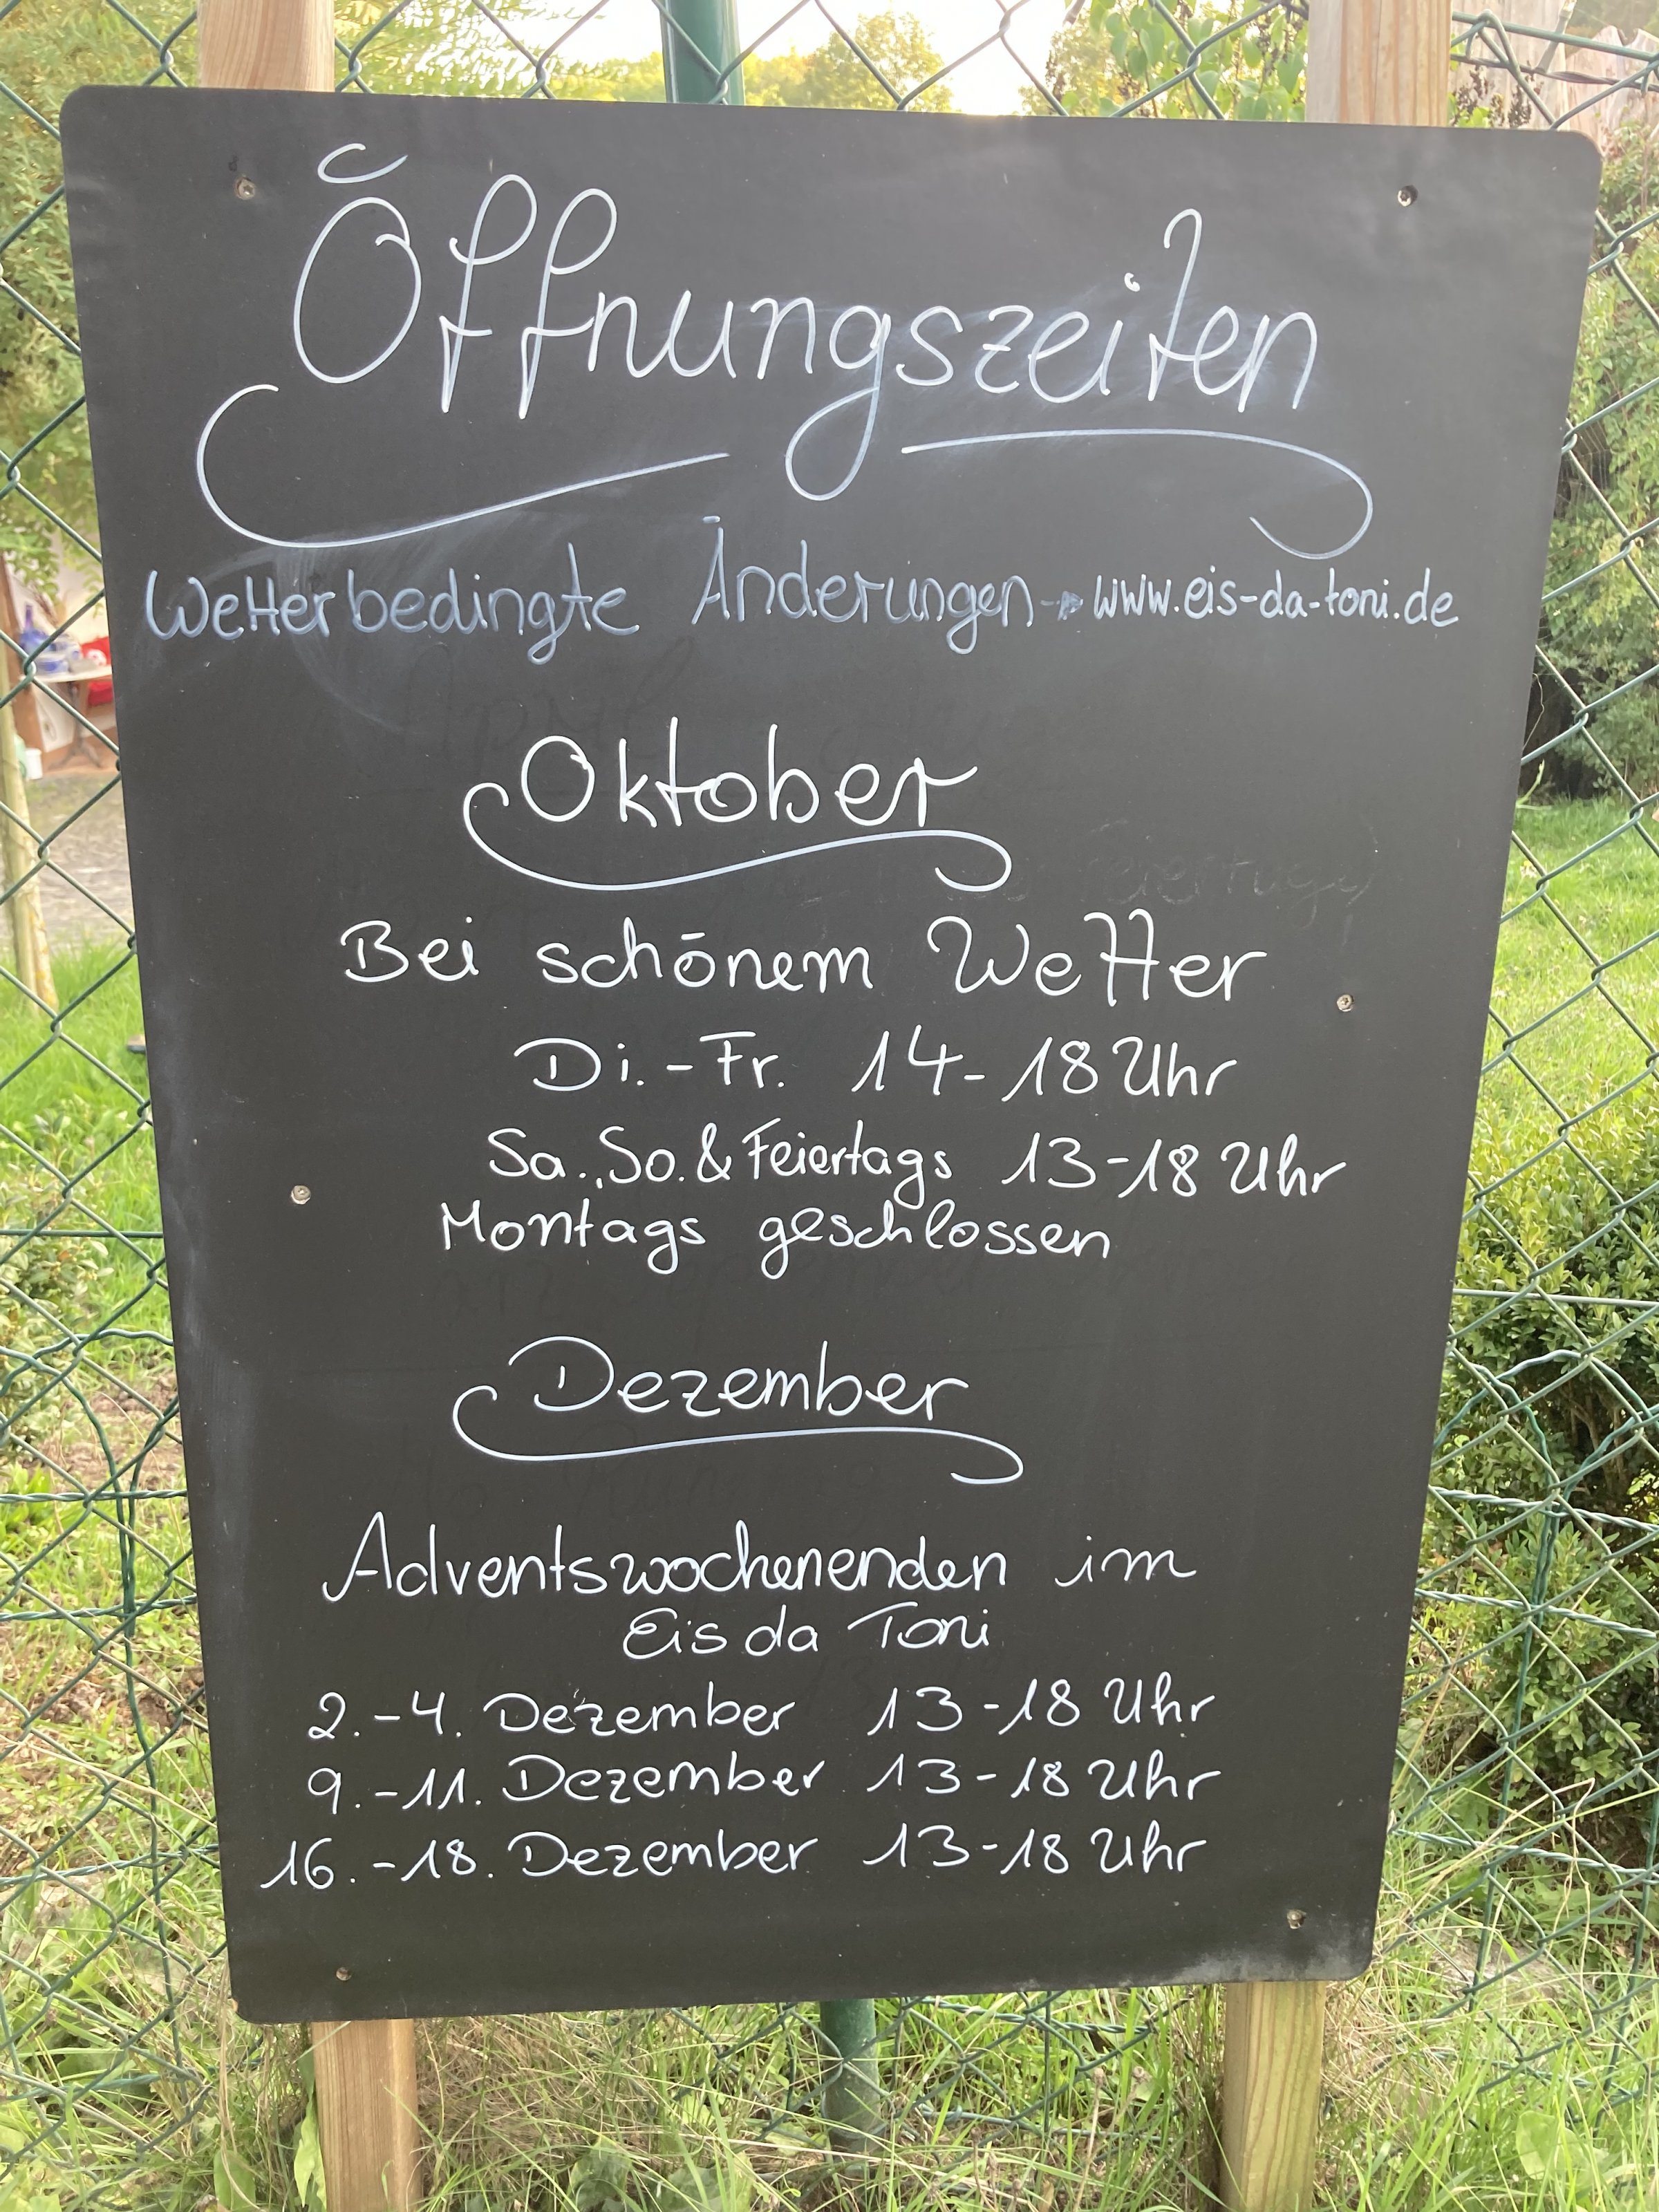 Öffnungszeiten
Wetterbedingte Änderungen → www.eis-da-toni.de
Oktober
Bei schönem Wetter
Di.-Fr. 14-18 Uhr
Sa., So. & Feiertags 13-18 Uhr
Montags geschlossen
Dezember
Adventswochenenden im
Eis da Toni
2.-4. Dezember 13-18 Uhr
9.-11. Dezember 13-18 Uhr
16.-18. Dezember 13-18 Uhr